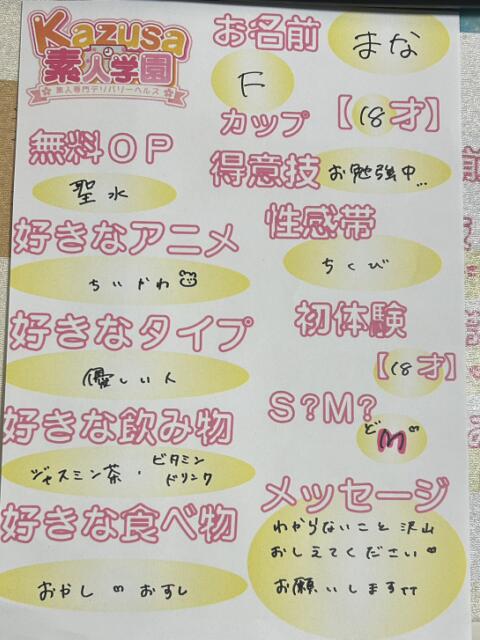 Kazusa
素人学園
素人専門デリバリーヘルス
お名前
まな
F
カップ
【18才】
無料OP
聖水
得意技
お勉強中...
好きなアニメ
ちいかわ
性感帯
ちくび
好きなタイプ
優しい人
初体験
【18才】
好きな飲み物
ジャスミン茶・ビタミン
ドリンク
S?M?
どM♡
好きな食べ物
おかし♡おすし
メッセージ
わからないこと沢山
おしえてください♡
お願いします